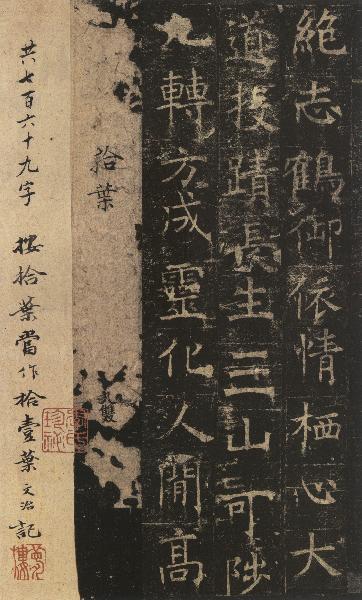 絶志鶴御依情栖心大
道投蹟長生三山可陟
九轉方成靈化人閒高
拾葉
共七百六十九字 按拾葉當作拾壹葉 文治記